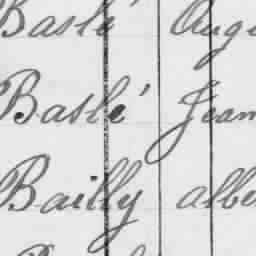 Baslé Aug
Baslé Jean
Bailly albe